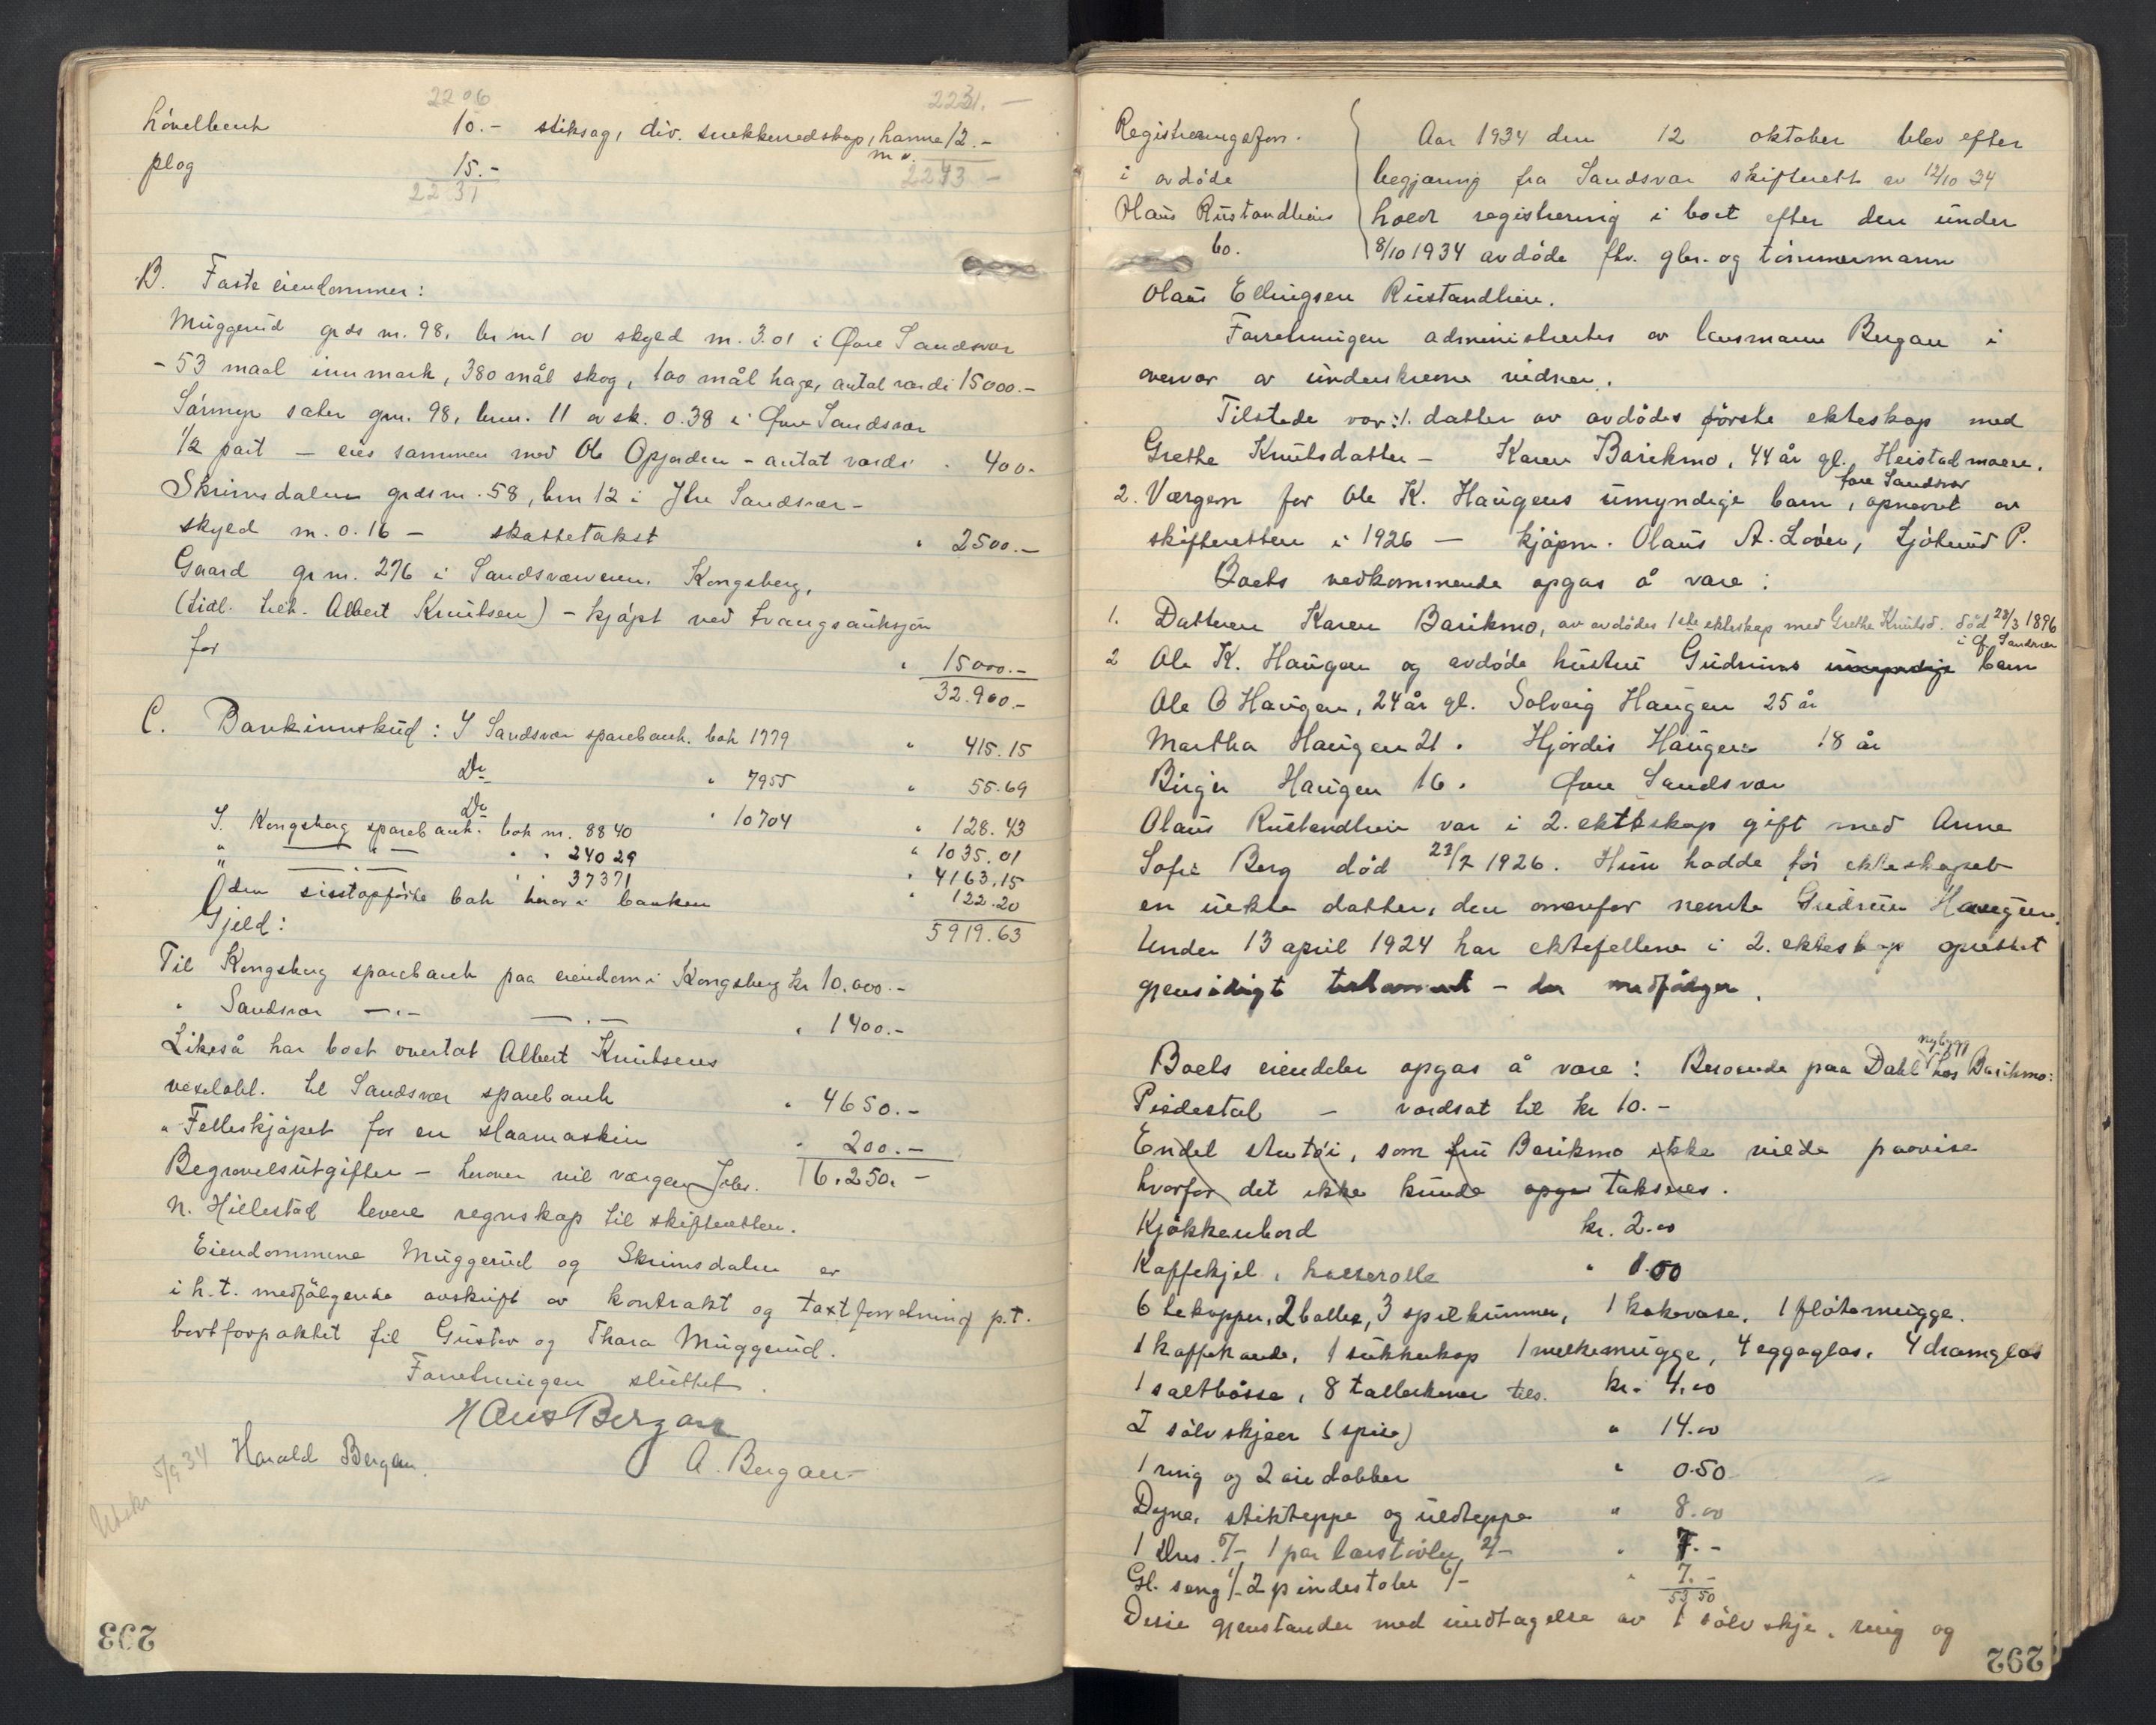 2206 2231.—
hövelbenk 10.— stiksag, div. snekkeredskap, hamme 12.—
m v.
plog 15.— 2243 —
2231
B. Faste eiendommer:
Muggerud grds nr. 98, br nr 1 av skyld m. 3.01 i Øvre Sandsvær
- 53 maal innmark, 380 mål skog, 100 mål hage, antat værdi 15000.—
sæter gnr. 98, bnr. 11 av sk. 0.38 i Øvre Sandsvær
1/2 part — eies sammen med Ole Opjorden - antat værdi " 400.
Skrimsdalen grdsnr. 58, bnr 12 i Ytre Sandsvær -
skyld m. 0.16 — skattetakst " 2500.—
Gaard gr nr. 276 i Sandsværveien, Kongsberg,
(tidl. tilh. Albert Knutsen) - kjöpt ved tvangsauksjon
for " 15000.—
32.900.—
C. Bankinnskud: I Sandsvær sparebank. bok 1779 " 415.15
Do " 7955 " 55.69
Do " 10704 " 128.43
I. Kongsberg sparebank. bok nr. 8840 " 1035.01
" — " — " " 24029 " 4163.15
" — " — " " 37371 " 122.20
den sisstopförte bok beror i banken
5919.63
Gjeld:
Til Kongsberg sparebank paa eiendom i Kongsberg kr 10.000.—
" Sandsvær —"— —"— " 1400.—
Likeså har boet overtat Albert Knutsens
vexelobl. til Sandsvær sparebank " 4650.—
" Felleskjöpet for en slaamaskin " 200.—
16.250.—
Begravelsutgifter — herover vil værgen Johs.
N. Hillestad levere regnskap til skifteretten.
Eiendommene Muggerud og Skrimsdalen er
i h.t. medfölgende avskrift av kontrakt og taxtforretning p.t.
bortforpaktet til Gustav og Thara Muggerud.
Forretningen sluttet.
Hans Bergan
Harald Bergan. A. Bergan
Utskr 5/9 34
293
Registreringsforr.
i avdöde
Olaus Rustandliens
bo.
Aar 1934 den 12 oktober blev efter
begjæring fra Sandsvær skifterett av 12/10 34
holdt registrering i boet efter den under
8/10 1934 avdöde fhv. gbr. og tömmermann
Olaus Ellingsen Rustandlien.
Forretningen administrertes av lensmann Bergan i
overvær av underskrevne vidner.
Tilstede var: 1. datter av avdödes förste ekteskap med
Grethe Knutsdatter — Karen Barikmo, 44 år gl. Heistadmoen,
Øvre Sandsvær
2. Værgen for Ole K. Haugens umyndige barn, opnevnt av
skifteretten i 1926 — kjöpm. Olaus A. Löver, P.
Boets vedkommende opgas å være:
1. Datteren Karen Barikmo, av avdödes 1ste ekteskap med Grethe Knutsd. död 22/3 1896
i Øv. Sandsvær
2 Ole K. Haugen og avdöde hustru Gudruns umyndige barn
Ole O Haugen, 24 år gl. Solveig Haugen 25 år
Martha Haugen 21. Hjördis Haugen 18 år
Birger Haugen 16. Øvre Sandsvær
Olaus Rustandlien var i 2. ekteskap gift med Anne
Sofie Berg död 23/7 1926. Hun hadde för ekteskapet
en uekte datter, den ovenfor nevnte Gudrun Haugen.
Under 13 april 1924 har ektefellene i 2. ekteskap oprettet
gjensidigt testament - der medfölger.
Boets eiendeler opgas å være: Beroende paa Dahl nybygg hos Barikmo:
Piedestal — værdsat til kr 10.—
Endel stentöi, som fru Barikmo ikke vilde paavise
hvorfor det ikke kunde opge takseres.
Kjökkenbord kr. 2.00
Kaffekjel, kasserolle " 1.00
6 tekopper, 2 boller, 3 spilkummer, 1 kakevase, 1 flötemugge.
1 kaffekande, 1 sukkerkop 1 melkemugge, 4 eggeglas, 4 dramglas
1 saltbösse, 8 tallerkener tils. kr. 4.00
I sölvskjeer (spise) " 14.00
1 ring og 2 öredobber " 0.50
Dyne, stikteppe og uldteppe " 8.00
1 dres. 5/- 1 par lærstövler 2/- " 7.-
Gl. seng 1/- 2 pindestoler 6/- " 7.-
53.50
Disse gjenstander med undtagelse av 1 sölvskje, ring og
292